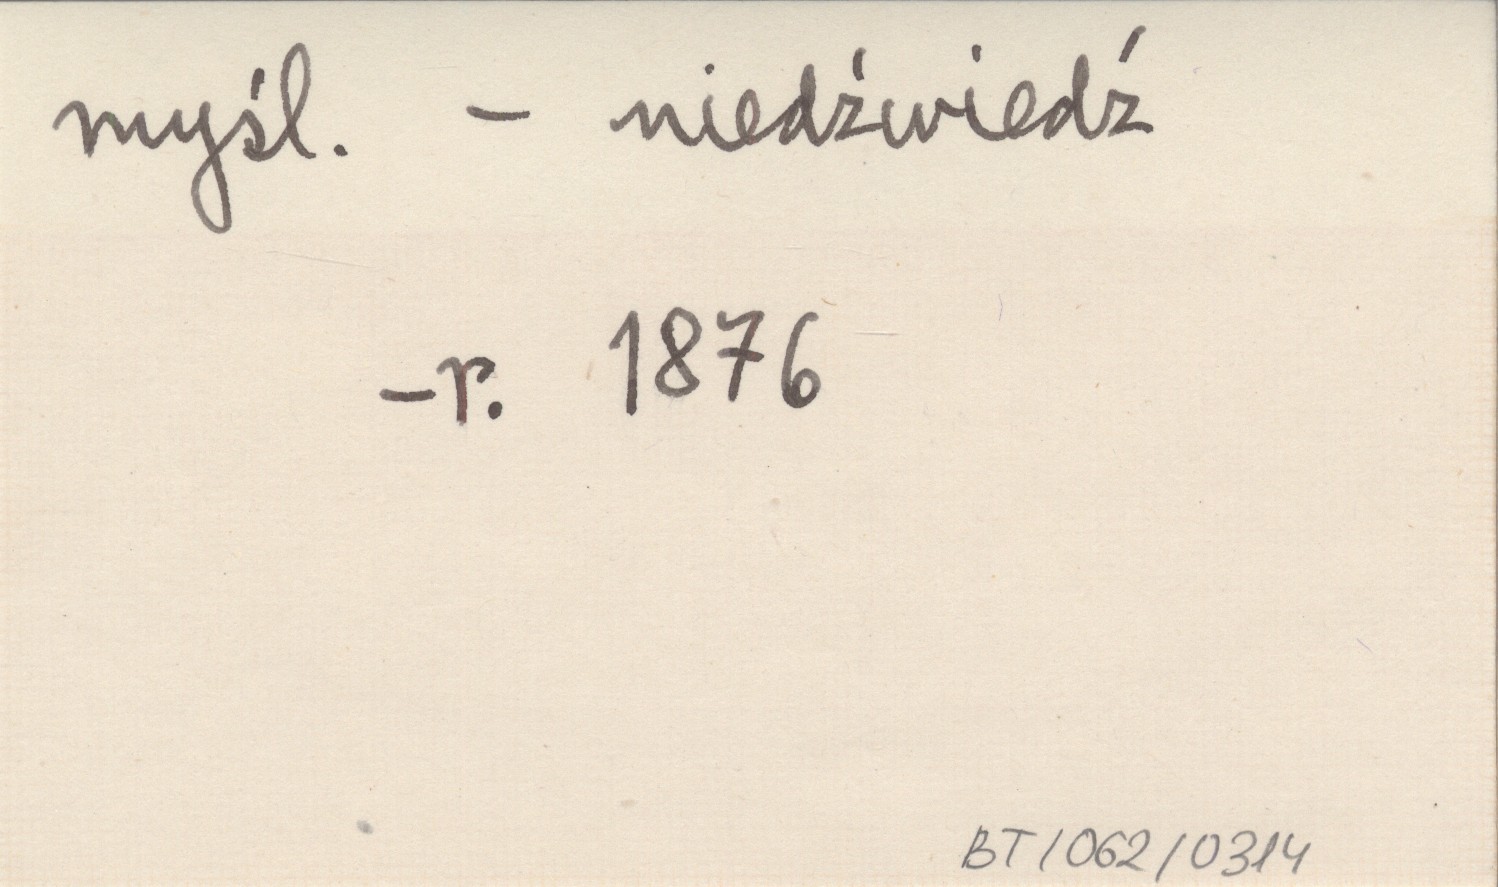 myśl. – niedźwiedź
– r. 1876
BT/062/0314